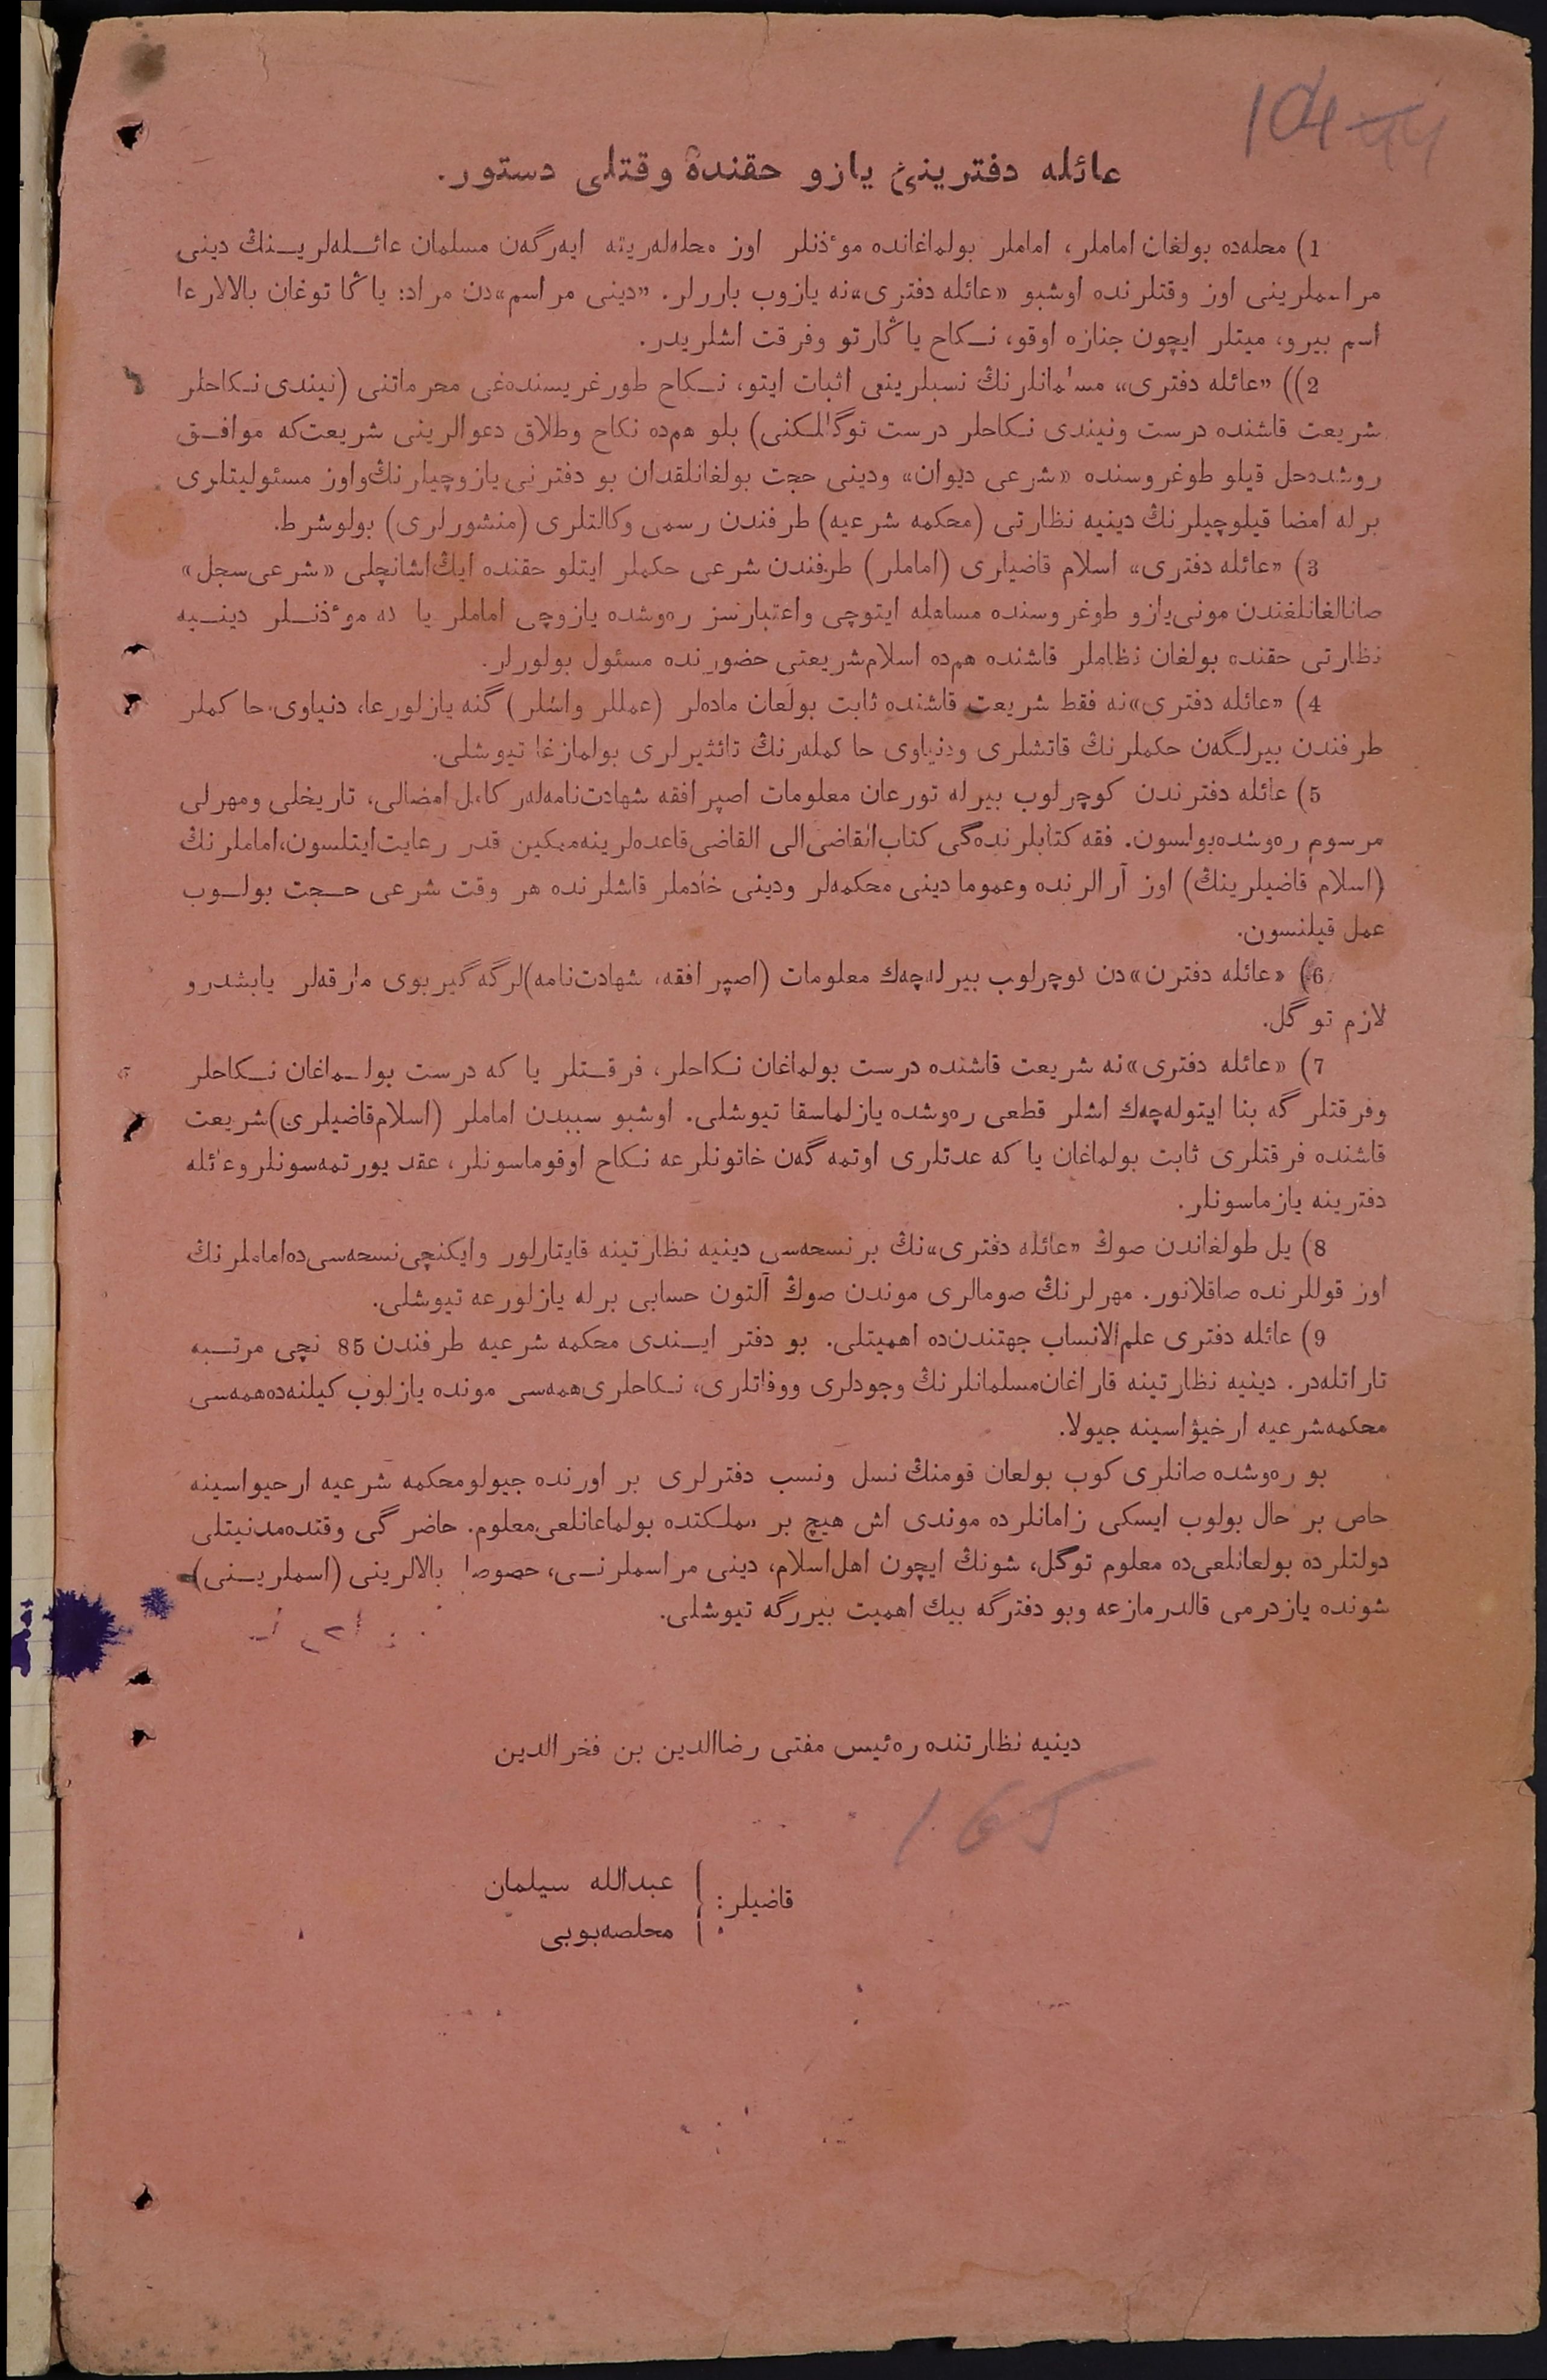 104 44
عائله دفترینی یازو حقنده وقتلی دستور.
1) محله‌ده بولغان اماملر، اماملر بولماغانده موٴذنلر اوز محله‌لەرینه ایەرگەن مسلمان عائـله‌لریـنڭ دینی
مراسملرینی اوز وقتلرنده اوشبو «عائله دفتری»نه یازوب باررلر. «دینی مراسم»دن مراد: یاڭا توغان بالالارعا
اسم بیرو، میتلر ایچون جنازه اوقو، نـکاح یاڭارتو وفرقت اشلریدر.
2)) «عائله دفتری» مسلمانلرنڭ نسبلرینی اثبات ایتو، نـکاح طورغریسنده‌غی محرماتنی (نیندی نـکاحلر
شریعت قاشنده درست ونیندی نـکاحلر درست توگللـکنی) بلو هم‌ده نکاح وطلاق دعوالرینی شریعت‌که موافـق
روشده‌حل قیلو طوغروسنده «شرعی دیوان» ودینی حجت بولغانلقدان بو دفترنی یازوچیلرنڭ‌واوز مسئولیتلری
برله امضا قیلوچیلرنڭ دینیه نظارتی (محکمه شرعیه) طرفندن رسمی وکالتلری (منشورلری) بولوشرط.
3) «عائله دفتری» اسلام قاضیلری (اماملر) طرفندن شرعی حکملر ایتلو حقنده ایڭ‌اشانچلی «شرعی‌سجل»
صانالغانلغندن مونی‌یازو طوغروسنده مساهله ایتوچی واعتبارسز رەوشده یازوچی اماملر یا که موٴذنـلر دینـیه
نظارتی حقنده بولغان نظاملر قاشنده هم‌ده اسلام‌شریعتی حضورنده مسئول بولورلر.
4) «عائله دفتری»نه فقط شریعت قاشنده ثابت بولعان ماده‌لر (عمللر واشلر) گنه یازلورعا، دنیاوی حاکملر
طرفندن بیرلـگەن حکملرنڭ قاتشلری ودنیاوی حاکملەرنڭ تائثیرلری بولمازغا تیوشلی.
5) عائله دفترندن کوچرلوب بیرله تورعان معلومات اصپرافقه شهادت‌نامه‌لەر کامل امضالی، تاریخلی ومهرلی
مرسوم رەوشده‌بولسون. فقه کتابلرنده‌گی کتاب‌القاضی‌الی القاضی‌قاعده‌لرینه‌ممکین قدر رعایت‌ایتلسون،اماملرنڭ
(اسلام قاضیلرینڭ) اوز آرالرنده وعموما دینی محکمه‌لر ودینی خادملر قاشلرنده هر وقت شرعی حـجت بولـوب
عمل قیلنسون.
6) «عائله دفترن»دن کوچرلوب بیرله‌چه‌ك معلومات (اصپرافقه، شهادت‌نامه)لرگه گیربوی مارقه‌لر یابشدرو
لازم توگل.
7) «عائله دفتری»نه شریعت قاشنده درست بولماغان نـکاحلر، فرقـتلر یا که درست بولـماغان نـکاحلر
وفرقتلرگه بنا ایتوله‌چه‌ك اشلر قطعی رەوشده یازلماسقا تیوشلی. اوشبو سببدن اماملر (اسلام‌قاضیلری)شریعت
قاشنده فرقتلری ثابت بولماغان یا که عدتلری اوتمه‌گەن خاتونلرعه نـکاح اوقوماسونلر، عقد یورتمه‌سونلروعائله
دفترینه یازماسونلر.
8) یل طولغاندن صوڭ «عائله دفتری»نڭ برنسحه‌سی دینیه نظارتینه قایتارلور وایکنچی‌نسحه‌سی‌ده‌اماملرنڭ
اوز قوللرنده صاقلانور. مهرلرنڭ صومالری موندن صوڭ آلتون حسابی برله یازلورعه تیوشلی.
9) عائله دفتری علم‌الانساب جهتندن‌ده اهمیتلی. بو دفتر ایـندی محکمه شرعیه طرفندن 85 نچی مرتـبه
تاراتله‌در. دینیه نظارتینه قاراغان‌مسلمانلرنڭ وجودلری ووفاتلری، نـکاحلری‌همه‌سی مونده یازلوب کیلنه‌ده‌همه‌سی
محکمه‌شرعیه ارخیۋاسینه جیولا.
بو رەوشده صانلری کوب بولعان قومنڭ نسل ونسب دفترلری بر اورنده جیولومحکمه شرعیه ارحیواسینه
حاص بر حال بولوب ایسکی زامانلرده موندی اش هیچ بر مملـکتده بولماعانلعی‌معلوم. حاضرگی وقتده‌مدنیتلی
دولتلرده بولعانلعی‌ده معلوم توگل، شونڭ ایچون اهل‌اسلام، دینی مراسملرنـی، حصوصا بالالرینی (اسملریـنی)
شونده یازدرمی قالدرمازعه وبو دفترگه بیك اهمیت بیررگه تیوشلی.
دینیه نظارتنده رەئیس مفتی رضاالدین بن فخرالدین
165
قاضیلر: عبدالله سیلمان
محلصه‌بوبی